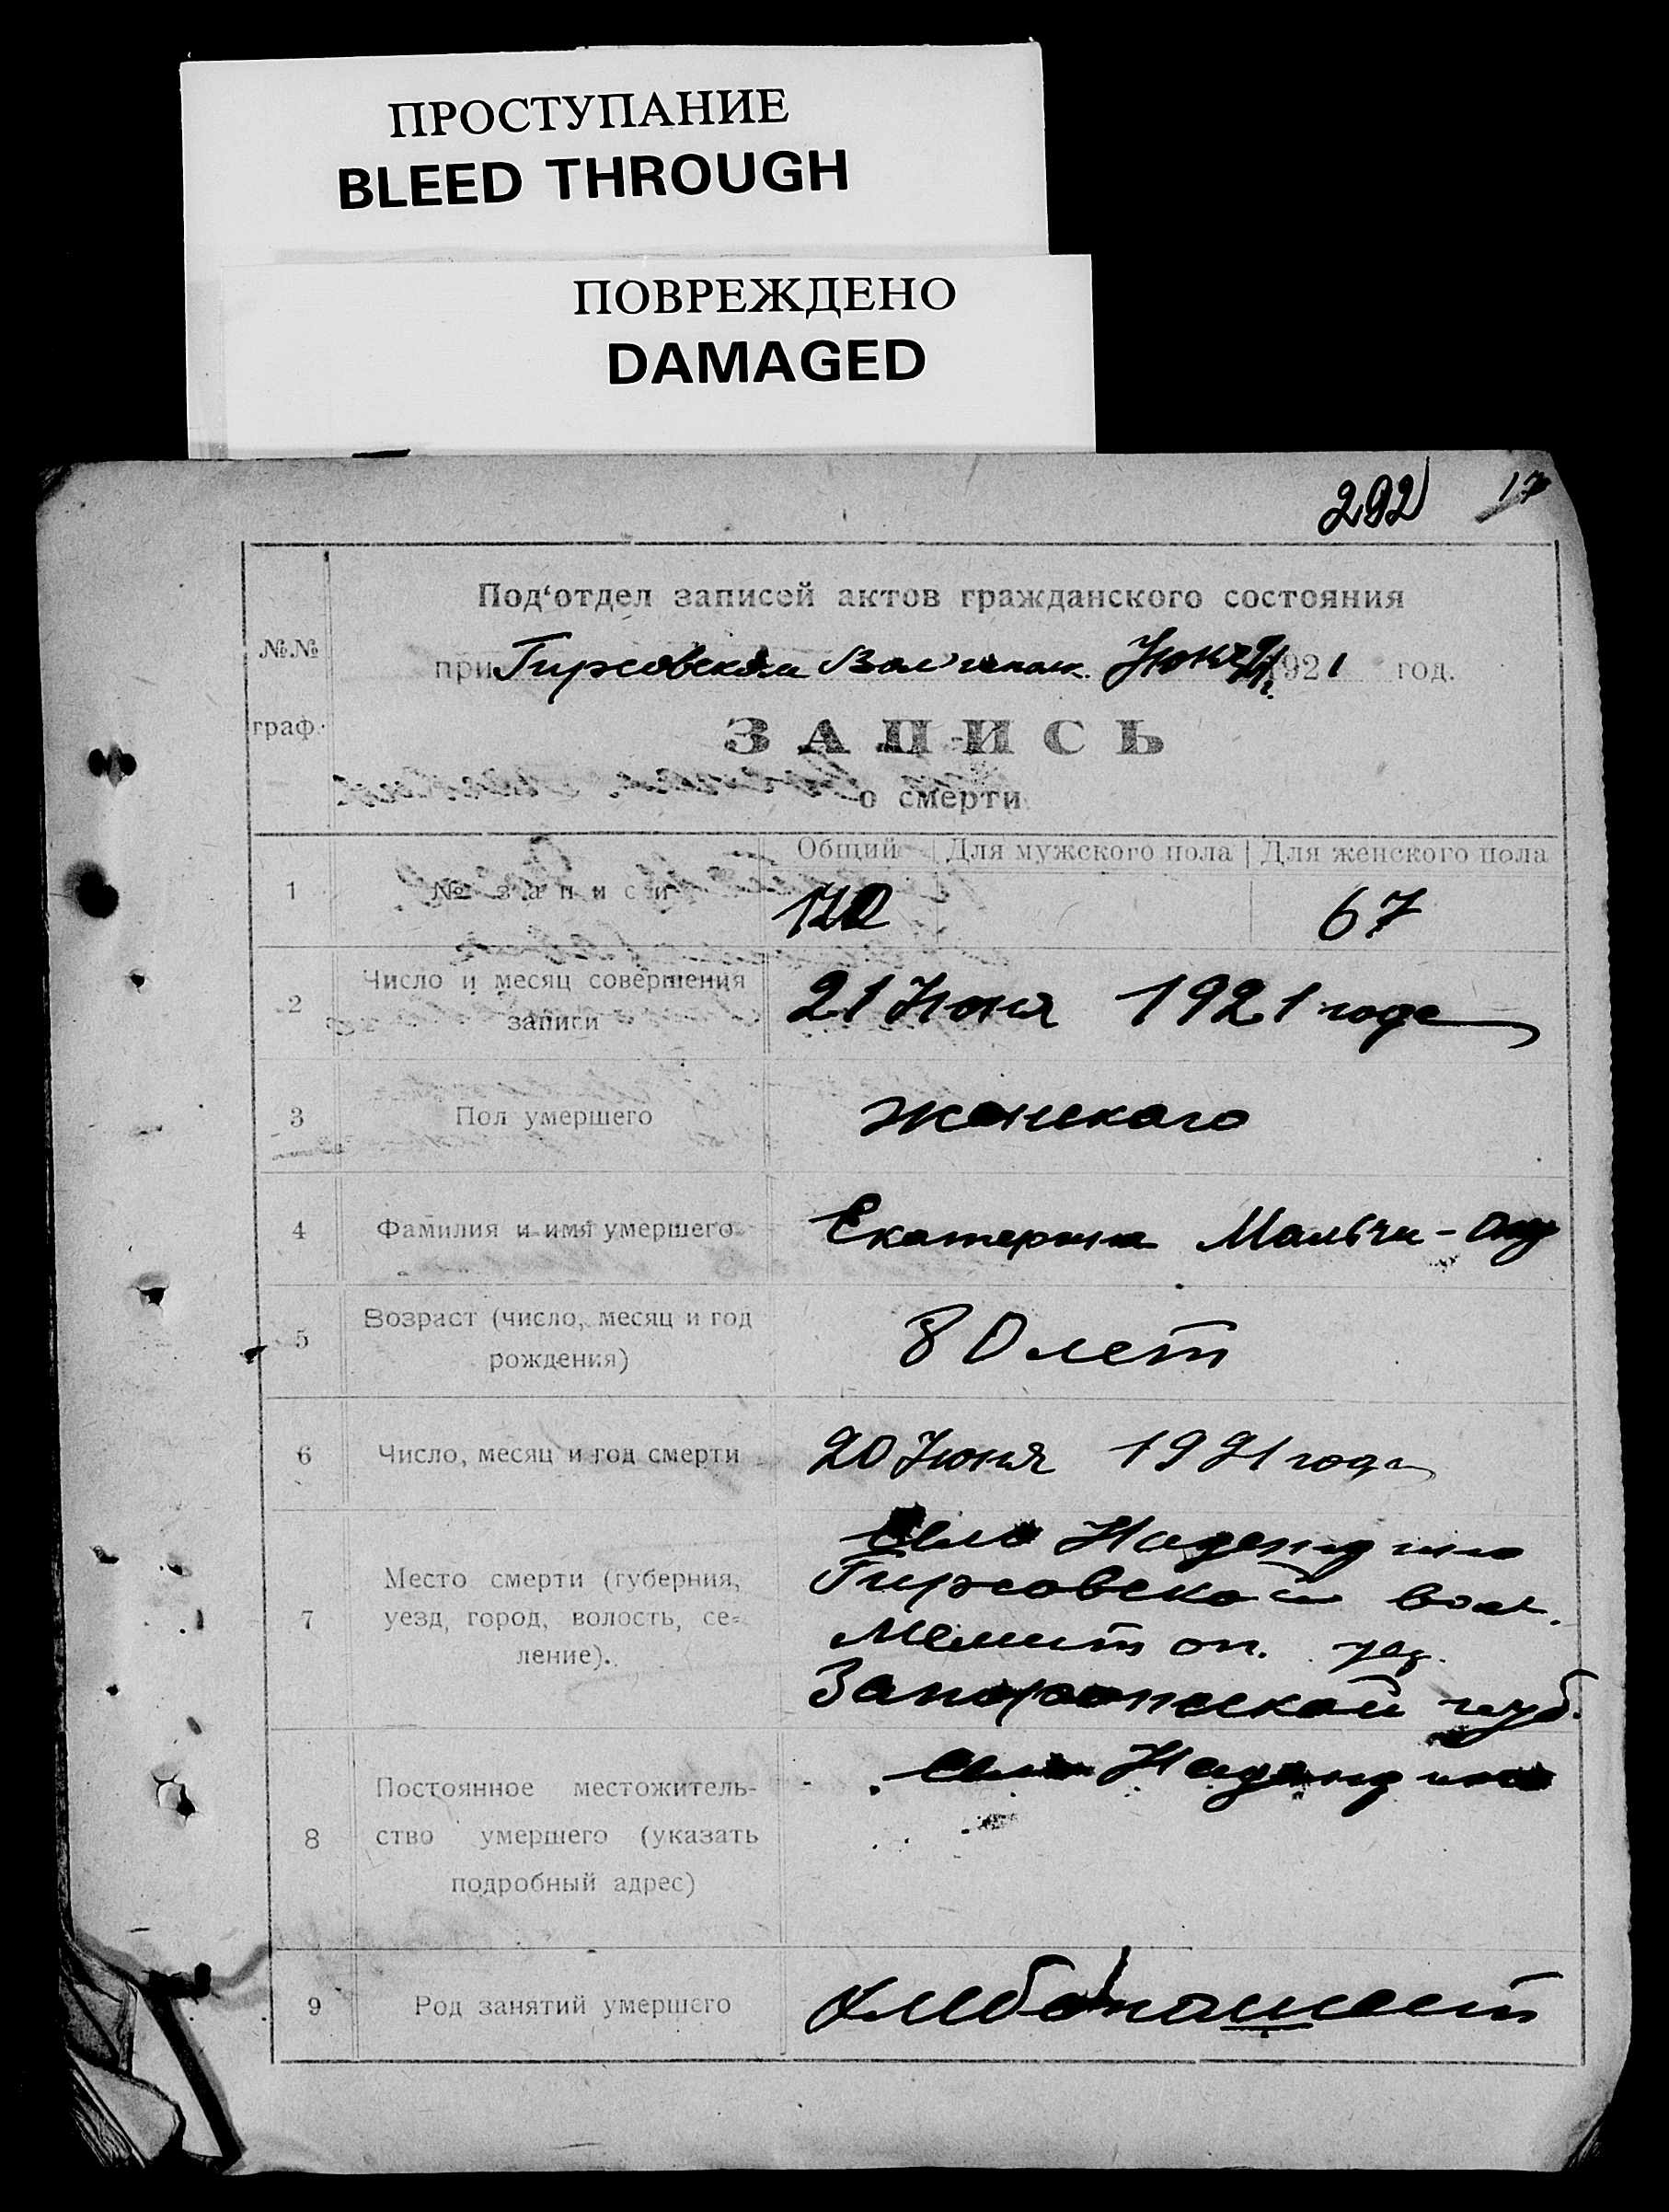 ПРОСТУПАНИЕ
BLEED THROUGH
ПОВРЕЖДЕНО
DAMAGED
292 17
Под‘отдел записей актов гражданского состояния
№№
при Гирсовском Вол'исполк. Июня 21 1921 год.
граф.
ЗАПИСЬ
о смерти
Общий Для мужского пола Для женского пола
1 № записи 67
2 Число и месяц совершения
записи
21 Июня 1921 года
3 Пол умершего женскаго
4 Фамилия и имя умершего Екатерина
5 Возраст (число, месяц и год
рождения)
80 лет
6 Число, месяц и год смерти 20 Июня 1921 года
7 Место смерти (губерния,
уезд, город, волость, се-
ление).
село Надеждино
Гирсовской вол.
Мелитоп. уез.
Запорожской губ.
8 Постоянное местожитель-
ство умершего (указать
подробный адрес)
село Надеждино
9 Род занятий умершего хлебопашест